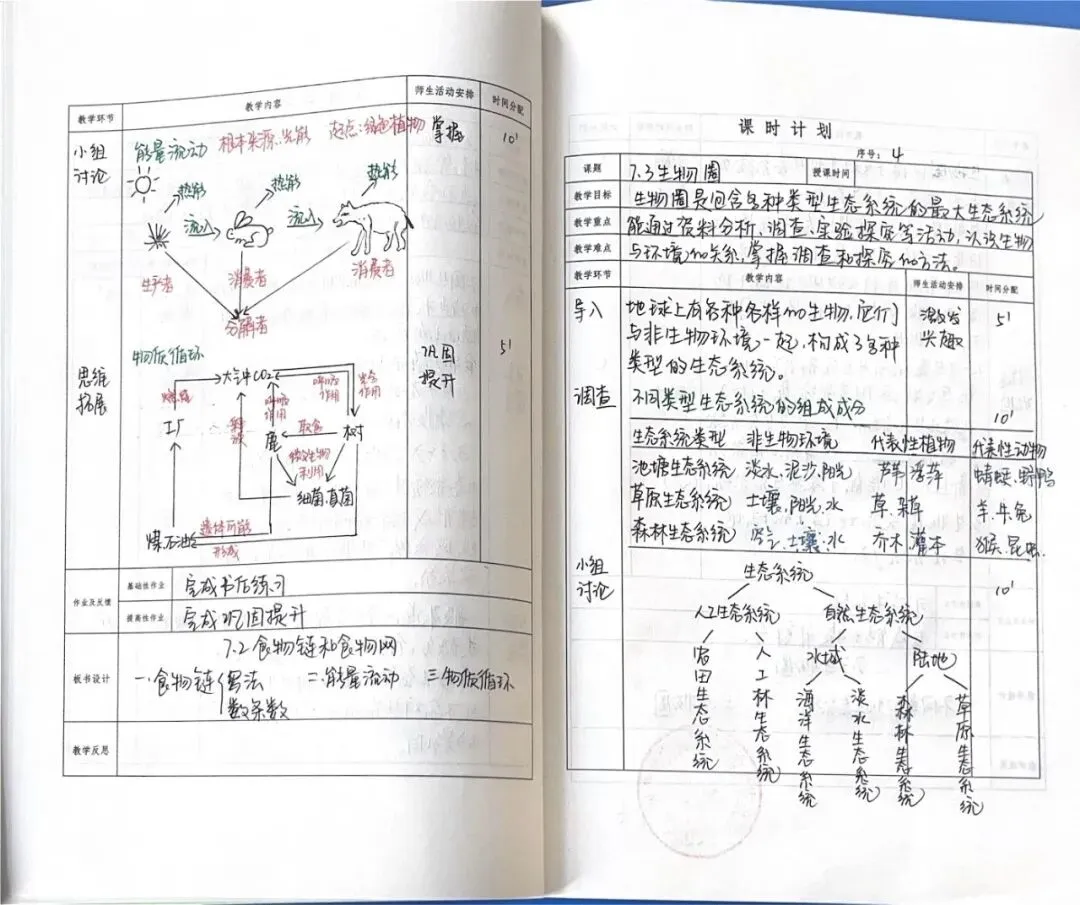 教学环节 教学内容 师生活动安排 时间分配
小组讨论 能量流动 根本来源:光能 起点:绿色植物 掌握 10'
热能 热能 热能
流入 流入
生产者 消费者 消费者
分解者
思维拓展 物质循环 巩固提升 5'
大气中CO2
燃烧 呼吸作用 呼吸作用 光合作用
工厂 分解 鹿 取食 树
微生物利用
细菌.真菌
煤.石油 遗体所能形成
作业及反馈 基础性作业 完成书后练习
提高性作业 完成巩固提升
板书设计 7.2食物链和食物网
一.食物链 写法 数条数 二.能量流动 三.物质循环
教学反思
课时计划
序号:4
课题 7.3生物圈 授课时间
教学目标 生物圈是包含各种类型生态系统的最大生态系统
教学重点 能通过资料分析、调查、实验探究等活动,认识生物
教学难点 与环境的关系,掌握调查和探究的方法。
教学环节 教学内容 师生活动安排 时间分配
导入 地球上有各种各样的生物,它们 激发兴趣 5'
与非生物环境一起,构成了各种
类型的生态系统。
调查 不同类型生态系统的组成成分 10'
生态系统类型 非生物环境 代表性植物 代表性动物
池塘生态系统 淡水、泥沙、阳光 芦苇、浮萍 蜻蜓、野鸭
草原生态系统 土壤、阳光、水 草、杂草 羊、牛、兔
森林生态系统 空气、土壤、水 乔木、灌木 猴、昆虫
小组讨论 生态系统 10'
人工生态系统 自然生态系统
水域 陆地
农田生态系统 人工林生态系统 海洋生态系统 淡水生态系统 森林生态系统 草原生态系统